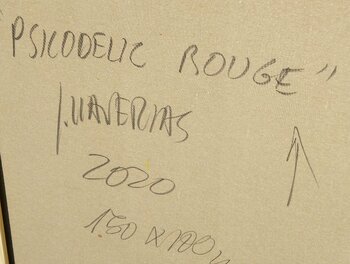 "PSICODELIC ROUGE"
J. UAVERIAS
2020
150 x 100